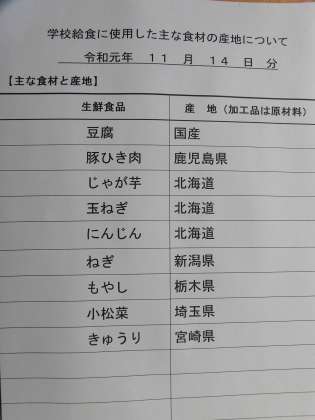 学校給食に使用した主な食材の産地について
令和元年 11 月 14 日 分
【主な食材と産地】
生鮮食品 産 地（加工品は原材料）
豆腐 国産
豚ひき肉 鹿児島県
じゃが芋 北海道
玉ねぎ 北海道
にんじん 北海道
ねぎ 新潟県
もやし 栃木県
小松菜 埼玉県
きゅうり 宮崎県